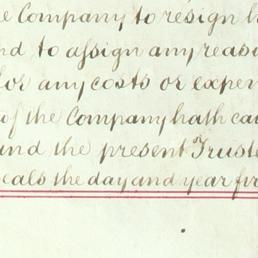 e Company to resign h
nd to assign any reaso
for any costs or expen
of the Company hath ca
and the present Truste
eals the day and year fir